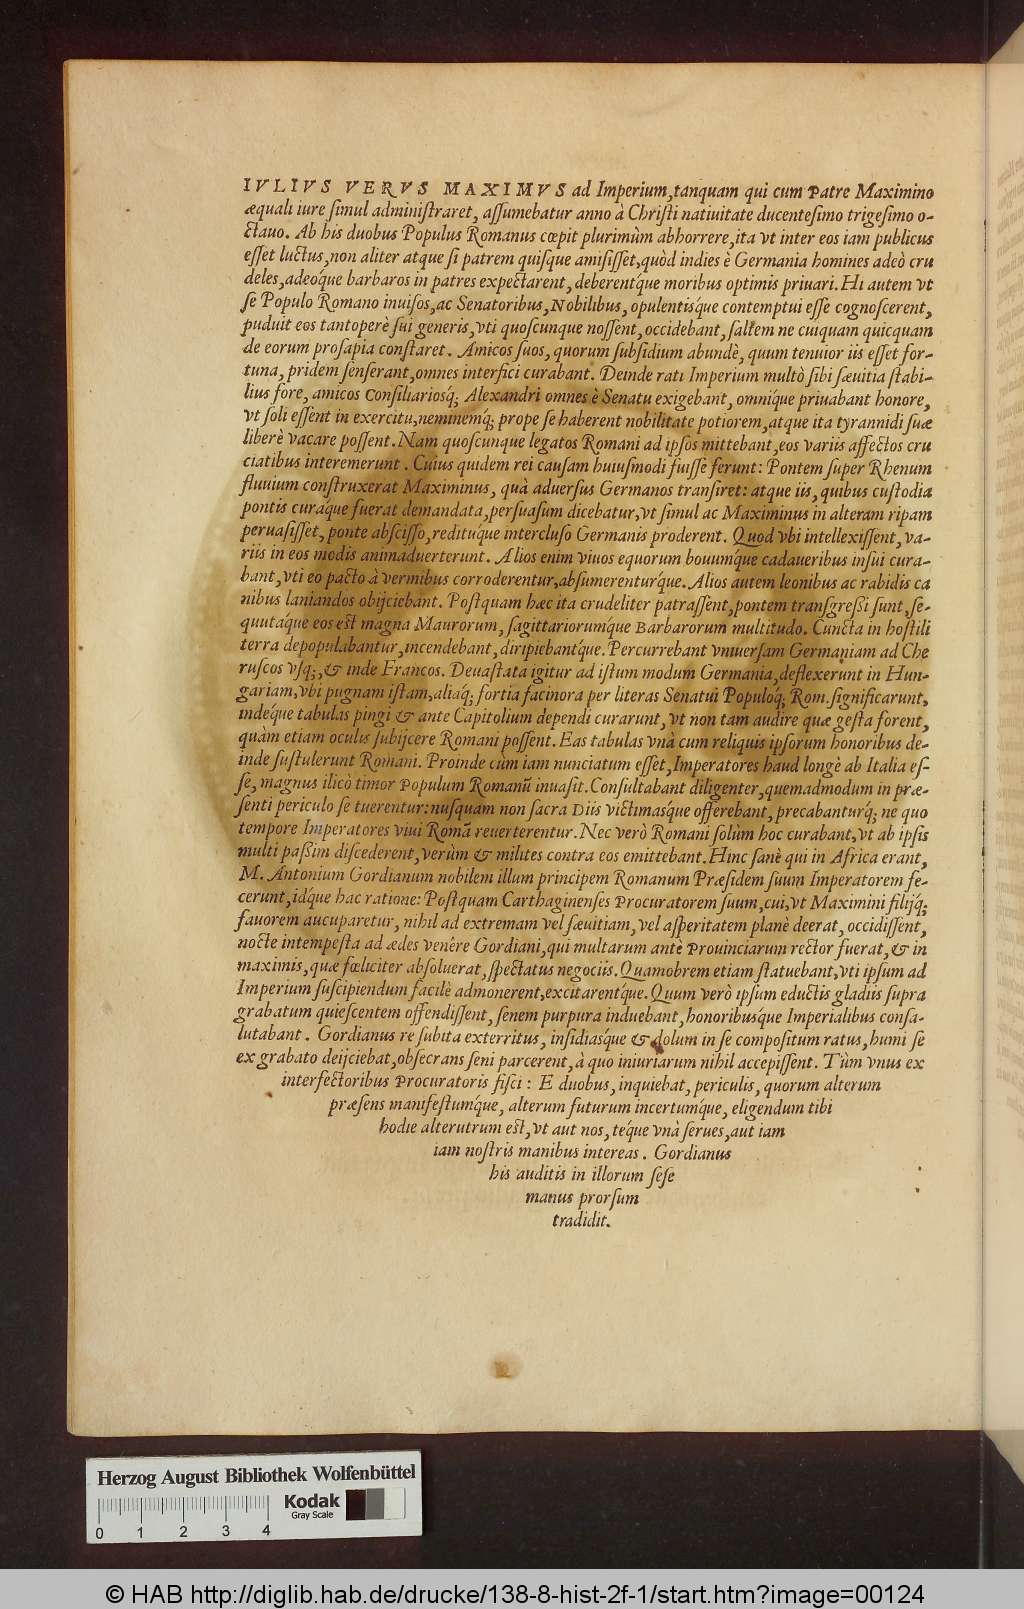 IVLIVS VERVS MAXIMVS ad Imperium, tanquam qui cum Patre Maximino
æquali iure simul administraret, assumebatur anno à Christi natiuitate ducentesimo trigesimo o-
ctauo. Ab his duobus Populus Romanus cœpit plurimùm abhorrere, ita vt inter eos iam publicus
esset luctus, non aliter atque si patrem quisque amisisset, quòd indies è Germania homines adeò cru
deles, adeoque barbaros in patres expectarent, deberentq́ue moribus optimis priuari. Hi autem vt
se Populo Romano inuisos, ac Senatoribus, Nobilibus, opulentisq́ue contemptui esse cognoscerent,
puduit eos tantoperè sui generis, vti quoscunque nossent, occidebant, saltem ne cuiquam quicquam
de eorum prosapia constaret. Amicos suos, quorum subsidium abundè, quum tenuior iis esset for-
tuna, pridem senserant, omnes interfici curabant. Deinde rati Imperium multò sibi sæuitia stabi-
lius fore, amicos Consiliariosq́; Alexandri omnes è Senatu exigebant, omnique priuabant honore,
vt soli essent in exercitu, neminemq́; prope se haberent nobilitate potiorem, atque ita tyrannidi suæ
liberè vacare possent. Nam quoscunque legatos Romani ad ipsos mittebant, eos variis affectos cru
ciatibus interemerunt. Cuius quidem rei causam huiusmodi fuisse ferunt: Pontem super Rhenum
fluuium construxerat Maximinus, quà aduersus Germanos transiret: atque iis, quibus custodia
pontis curaque fuerat demandata, persuasum dicebatur, vt simul ac Maximinus in alteram ripam
peruasisset, ponte abscisso, redituque intercluso Germanis proderent. Quod vbi intellexissent, va-
riis in eos modis animaduerterunt. Alios enim viuos equorum bouumq́ue cadaueribus insui cura-
bant, vti eo pacto à vermibus corroderentur, absumerenturq́ue. Alios autem leonibus ac rabidis ca
nibus laniandos obijciebant. Postquam hæc ita crudeliter patrassent, pontem transgressi sunt, se-
quutaq́ue eos est magna Maurorum, sagittariorumq́ue Barbarorum multitudo. Cuncta in hostili
terra depopulabantur, incendebant, diripiebantq́ue. Percurrebant vniuersam Germaniam ad Che
ruscos vsq́;, & inde Francos. Deuastata igitur ad istum modum Germania, deflexerunt in Hun-
gariam, vbi pugnam istam, aliaq́; fortia facinora per literas Senatui Populoq́; Rom. significarunt,
indeq́ue tabulas pingi & ante Capitolium dependi curarunt, vt non tam audire quæ gesta forent,
quàm etiam oculis subijcere Romani possent. Eas tabulas vnà cum reliquis ipsorum honoribus de-
inde sustulerunt Romani. Proinde cùm iam nunciatum esset, Imperatores haud longè ab Italia es-
se, magnus ilicò timor Populum Romanũ inuasit. Consultabant diligenter, quemadmodum in præ-
senti periculo se tuerentur: nusquam non sacra Diis victimasq́ue offerebant, precabanturq́; ne quo
tempore Imperatores viui Romã reuerterentur. Nec verò Romani solùm hoc curabant, vt ab ipsis
multi passim discederent, verùm & milites contra eos emittebant. Hinc sanè qui in Africa erant,
M. Antonium Gordianum nobilem illum principem Romanum Præsidem suum Imperatorem fe-
cerunt, idq́ue hac ratione: Postquam Carthaginenses Procuratorem suum, cui, vt Maximini filijq́;
fauorem aucuparetur, nihil ad extremam vel sæuitiam, vel asperitatem planè deerat, occidissent,
nocte intempesta ad ædes venêre Gordiani, qui multarum antè Prouinciarum rector fuerat, & in
maximis, quæ fœliciter absoluerat, spectatus negociis. Quamobrem etiam statuebant, vti ipsum ad
Imperium suscipiendum facilè admonerent, excitarentq́ue. Quum verò ipsum eductis gladiis supra
grabatum quiescentem offendissent, senem purpura induebant, honoribusque Imperialibus consa-
lutabant. Gordianus re subita exterritus, insidiasq́ue & dolum in se compositum ratus, humi se
ex grabato deijciebat, obsecrans seni parcerent, à quo iniuriarum nihil accepissent. Tùm vnus ex
interfectoribus Procuratoris fisci: E duobus, inquiebat, periculis, quorum alterum
præsens manifestumq́ue, alterum futurum incertumq́ue, eligendum tibi
hodie alterutrum est, vt aut nos, teque vnà serues, aut iam
iam nostris manibus intereas. Gordianus
his auditis in illorum sese
manus prorsum
tradidit.
Herzog August Bibliothek Wolfenbüttel
Kodak
Gray Scale
0 1 2 3 4
© HAB http://diglib.hab.de/drucke/138-8-hist-2f-1/start.htm?image=00124